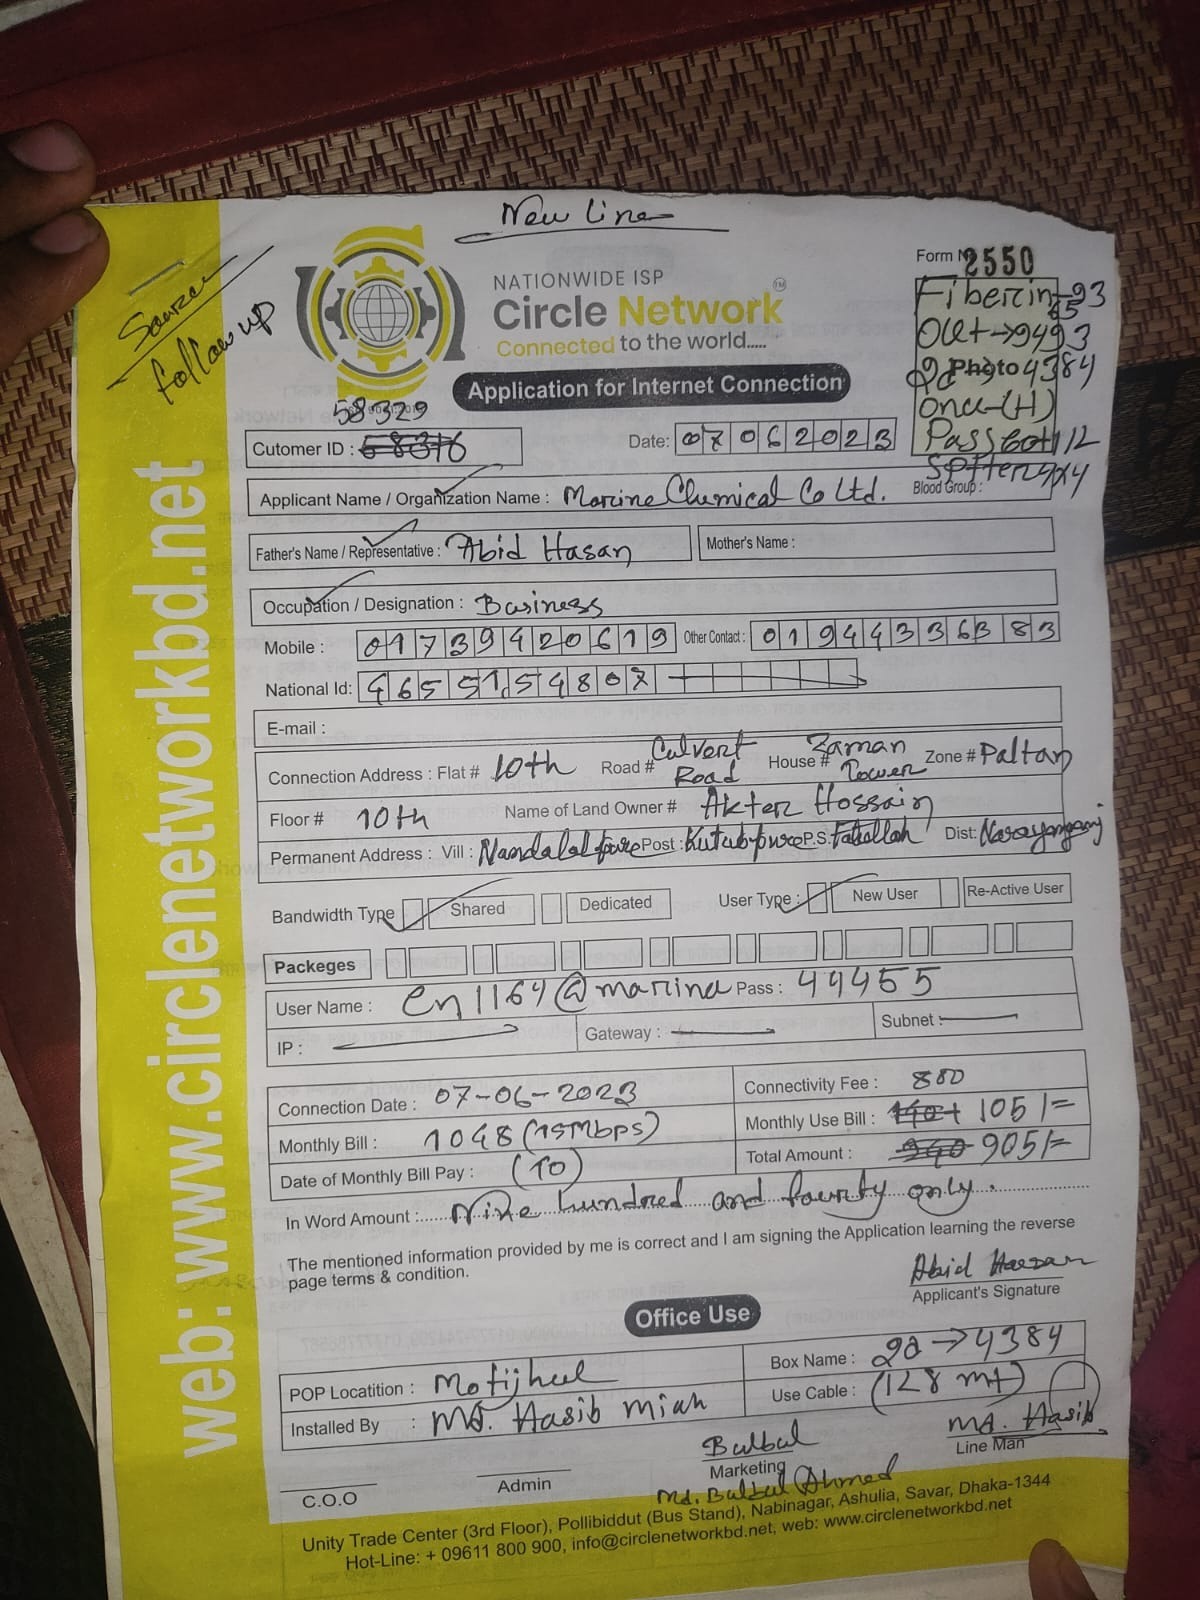 New Line
Source
follow up
NATIONWIDE ISP
Circle Network
TM
Connected to the world.....
Application for Internet Connection
Form N 2550
Fiber in-93
65
Out→9493
Photo 4384
onu-(H)
Passbot 1/2
58329
Cutomer ID : 58376
Date: 07062023
Blood Group :
Applicant Name / Organization Name : Marine Chemical Co Ltd.
Father's Name / Representative : Abid Hasan
Mother's Name :
Occupation / Designation : Business
Mobile : 01739420619 Other Contact : 01944336383
National Id: 4655154807
E-mail :
Connection Address : Flat # 10th Road # Culvert Road House # Zaman Tower Zone # Paltan
Floor # 10th Name of Land Owner # Akter Hossain
Permanent Address : Vill : Nandalalpure Post : Kutubpure P.S. Fatullah Dist: Narayangang
Bandwidth Type Shared Dedicated User Type : New User Re-Active User
Packeges
User Name : cn1164@marine Pass : 44455
IP : Gateway : Subnet :
Connection Date : 07-06-2023 Connectivity Fee : 800
Monthly Bill : 1048 (15Mbps) Monthly Use Bill : 140+ 105/=
Date of Monthly Bill Pay : (10) Total Amount : 940 905/=
In Word Amount :...... Nine hundred and fourty only.
The mentioned information provided by me is correct and I am signing the Application learning the reverse
page terms & condition.
Abid Hassan
Applicant's Signature
Office Use
POP Locatition : Motijheel Box Name : 20→4384
Installed By : MD. Hasib Miah Use Cable : (128 mt)
Bulbul
MD. Hasib
C.O.O Admin Marketing Line Man
Md. Bulbul Ahmed
Unity Trade Center (3rd Floor), Pollibiddut (Bus Stand), Nabinagar, Ashulia, Savar, Dhaka-1344
Hot-Line: + 09611 800 900, info@circlenetworkbd.net, web: www.circlenetworkbd.net
web: www.circlenetworkbd.net